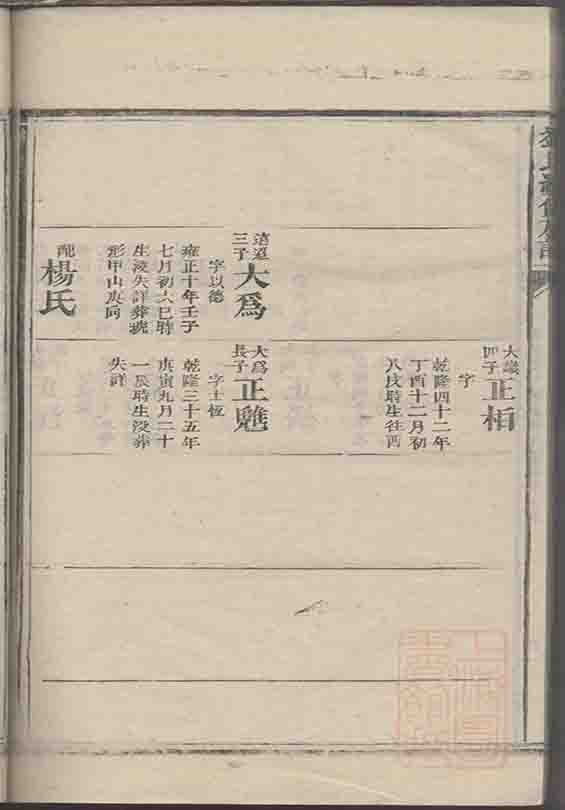 大㠖
四子
正栢
字
乾隆四十二年
丁酉十二月初
八戌時生往西
這道
三子
大爲
字以德
雍正十年壬子
七月初六巳時
生淩失詳葬琥
形甲山庚向
配
楊氏
大爲
長子
正魋
字士恆
乾隆三十五年
庚寅九月二十
一辰時生没葬
失詳